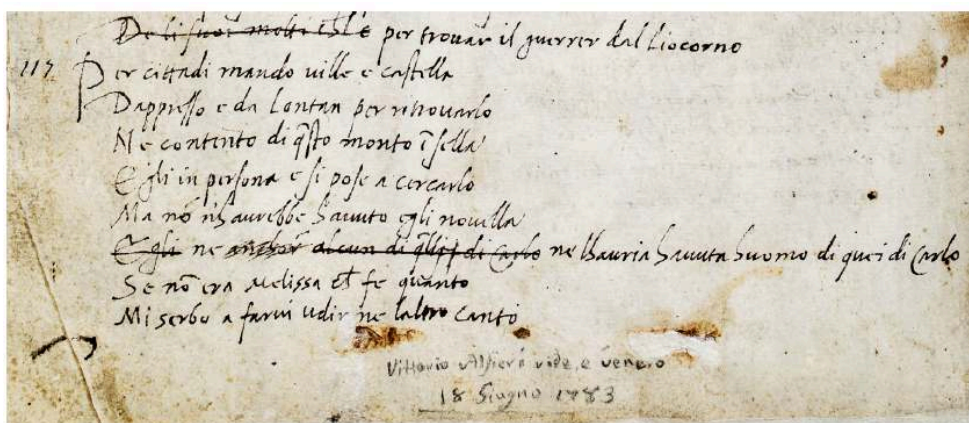 De li suoi molti ch̃l è per trovar il guerrer dal liocorno
117 Per cittadi mando ville e castella
Dappresso e da lontan per ritrovarlo
Ne contento di q̃sto monto ĩ sella
Egli in persona e si pose a cercarlo
Ma nõ n'haurebbe hauuto egli nouella
Egli ne anchor alcun di q̃lli di Carlo ne lhauria hauuta huomo di quei di Carlo
Se nõ era Melissa fe quanto
Mi serbo a farui udir ne laltro canto
Vittorio Alfieri vide e venerò
18 Giugno 1783